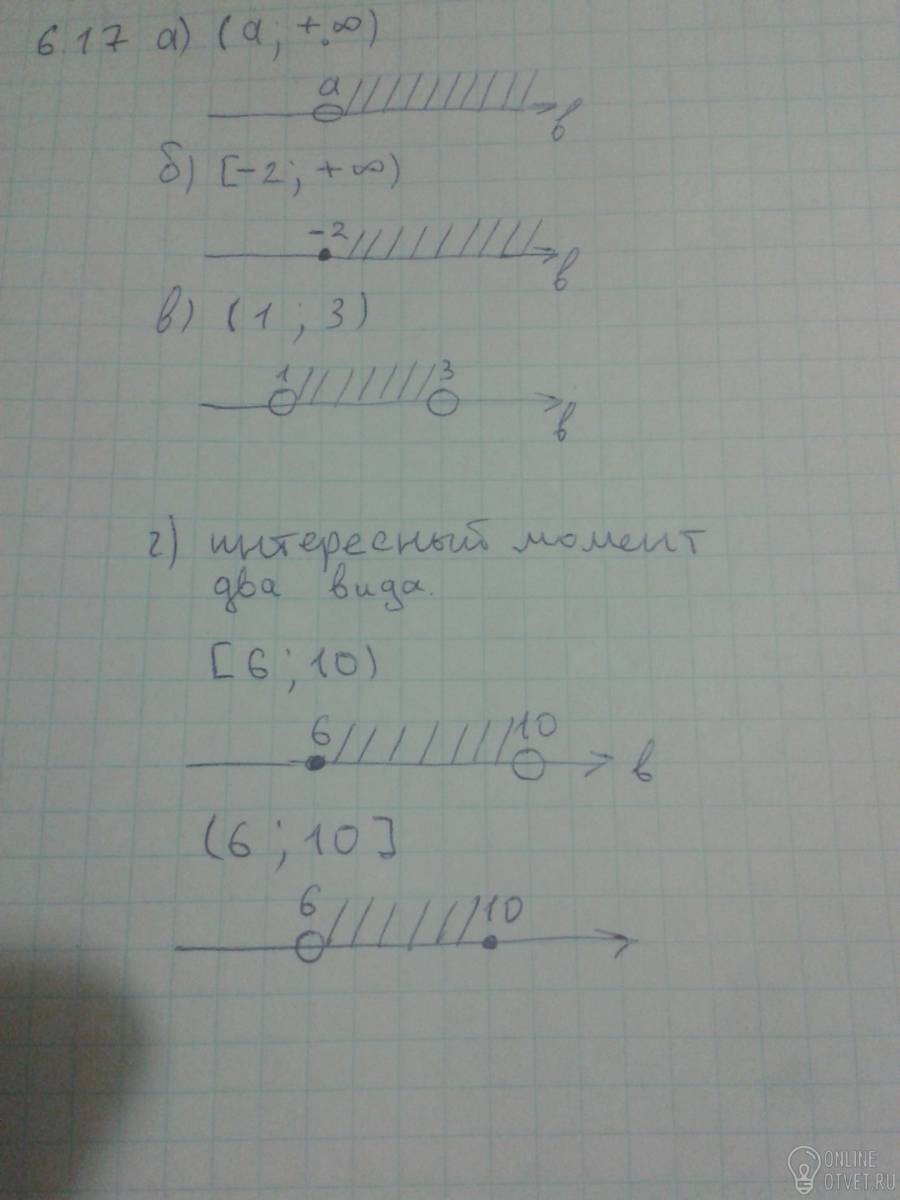 6.17 а) (а; +∞)
а
в
б) [-2; +∞)
-2
в
в) (1; 3)
1 3
в
г) интересный момент
два вида.
[6; 10)
6 10
в
(6; 10]
6 10
ONLINE
OTVET.RU